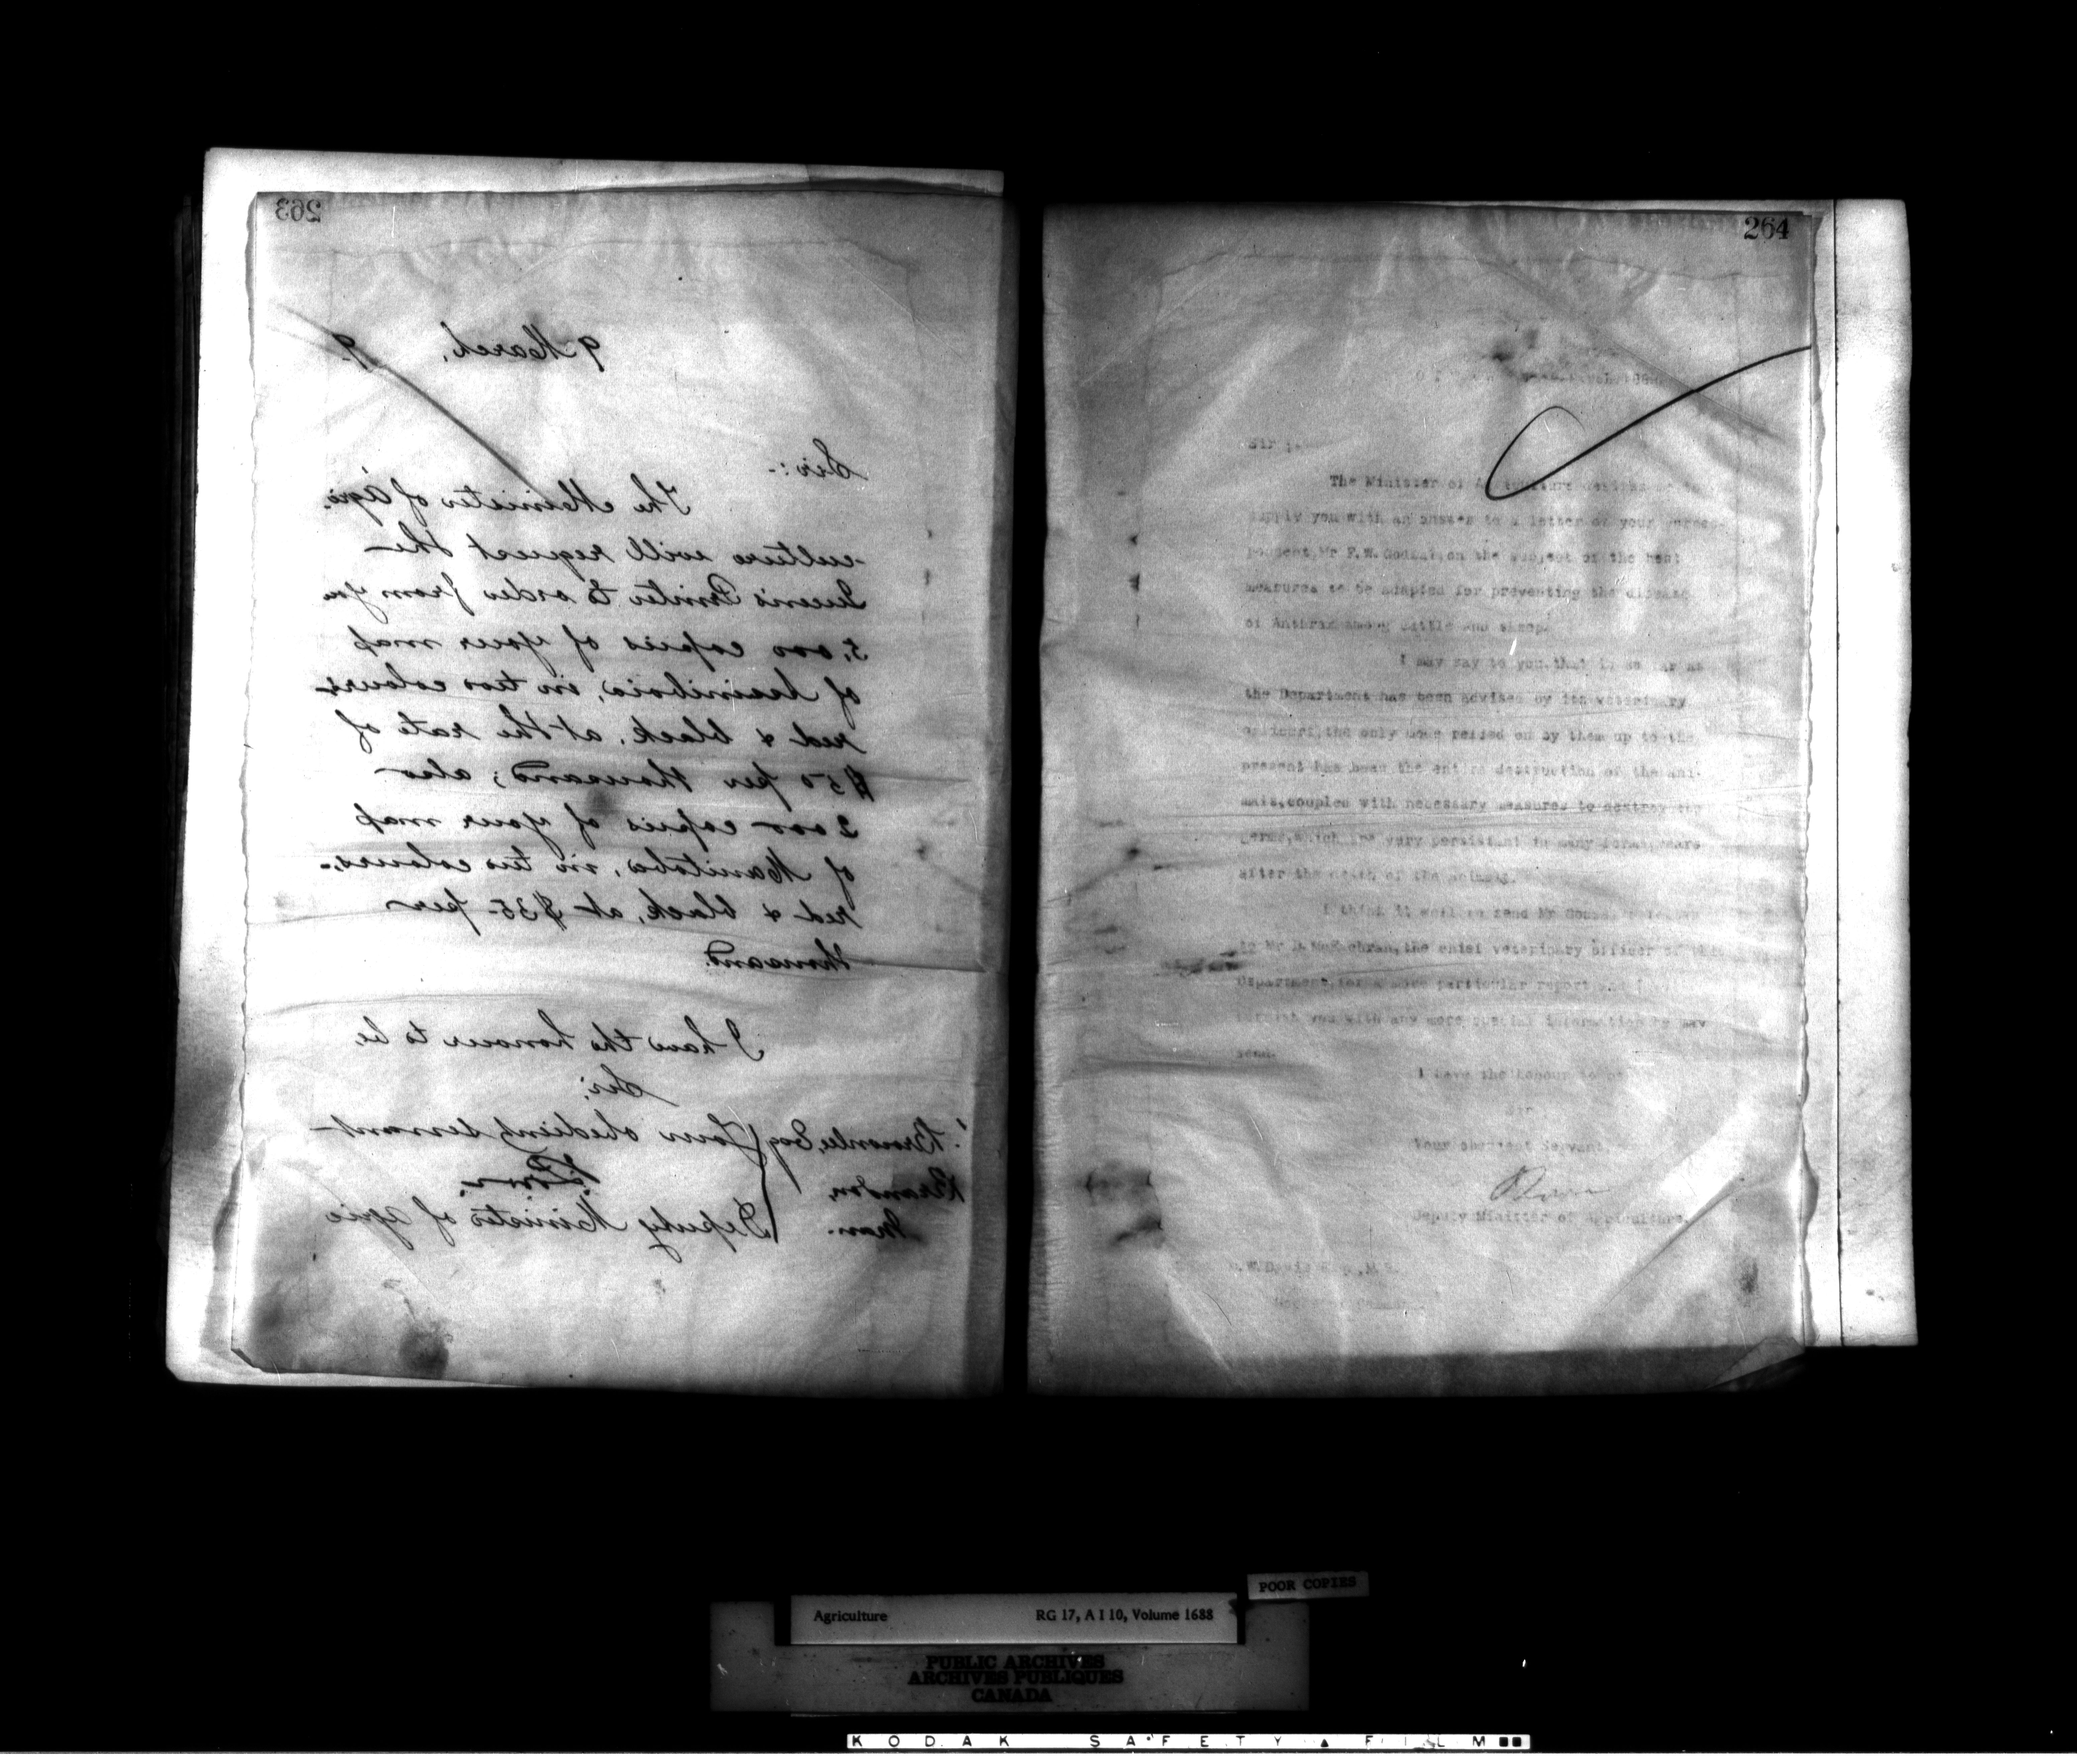 263
9 March, 9.
Sir:-
The Minister of Agri-
-culture will request the
Queen's Printer to order from you
5,000 copies of your map
of Assiniboia, in two colours-
red & black, at the rate of
$50 per thousand; also
2000 copies of your map
of Manitoba, in two colours,-
red & black, at $35- per
thousand.
I have the honour to be
Sir,
Your obedient servant
Deputy Minister of Agric
Brownlee, Esq
Brandon,
Man.
264
Sir
The Minister of Agriculture desires me to
supply you with an answer to a letter of your
Mr F.W. on the subject of the best
measures to be adapted for preventing the disease
of Anthrax among cattle and sheep.
I may say to you, that in so far as
the Department has been advised by its veterinary
officers, the only ones relied on by them up to the
present has been the entire destruction of the ani-
mals, coupled with necessary measures to destroy the
germs, which are very persistent in many forms, years
after the death of the animals.
I think it well to send Mr letter
to Mr D. McEachran, the chief veterinary officer of this
Department, for a more particular report and I
you with any more special information he may
send.
I have the honour to be
Sir
Your obedient Servant,
Deputy Minister of Agriculture.
D.W. Davis Esq., M.P.
Commons
Agriculture RG 17, A I 10, Volume 1688
POOR COPIES
PUBLIC ARCHIVES
ARCHIVES PUBLIQUES
CANADA
KODAK SAFETY FILM